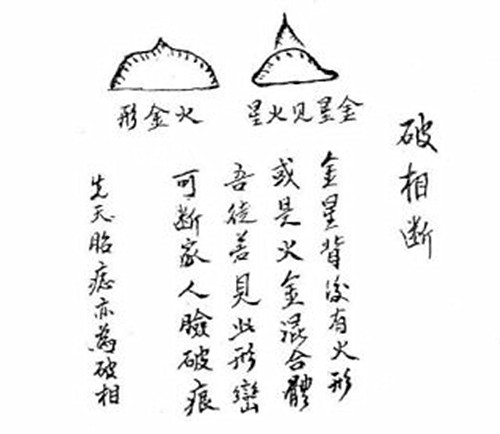 破相断
金星見火星
火金形
金星背後有火形
或是火金混合體
吾徒若見此形巒
可断家人臉破痕
先天胎痣亦為破相